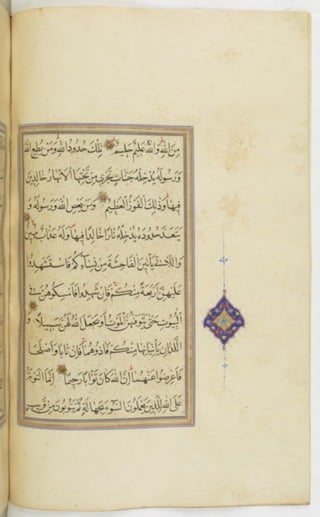 مِنَ اللَّهِ وَاللَّهُ عَلِيمٌ حَلِيمٌ تِلْكَ حُدُودُ اللَّهِ وَمَنْ يُطِعِ اللَّهَ
وَرَسُولَهُ يُدْخِلْهُ جَنَّاتٍ تَجْرِي مِنْ تَحْتِهَا الْأَنْهَارُ خَالِدِينَ
فِيهَا وَذَلِكَ الْفَوْزُ الْعَظِيمُ وَمَنْ يَعْصِ اللَّهَ وَرَسُولَهُ وَ
يَتَعَدَّ حُدُودَهُ يُدْخِلْهُ نَارًا خَالِدًا فِيهَا وَلَهُ عَذَابٌ مُهِينٌ
وَاللَّاتِي يَأْتِينَ الْفَاحِشَةَ مِنْ نِسَائِكُمْ فَاسْتَشْهِدُوا
عَلَيْهِنَّ أَرْبَعَةً مِنْكُمْ فَإِنْ شَهِدُوا فَأَمْسِكُوهُنَّ فِي
الْبُيُوتِ حَتَّى يَتَوَفَّاهُنَّ الْمَوْتُ أَوْ يَجْعَلَ اللَّهُ لَهُنَّ سَبِيلًا وَ
اللَّذَانِ يَأْتِيَانِهَا مِنْكُمْ فَآذُوهُمَا فَإِنْ تَابَا وَأَصْلَحَا
فَأَعْرِضُوا عَنْهُمَا إِنَّ اللَّهَ كَانَ تَوَّابًا رَحِيمًا إِنَّمَا التَّوْبَةُ
عَلَى اللَّهِ لِلَّذِينَ يَعْمَلُونَ السُّوءَ بِجَهَالَةٍ ثُمَّ يَتُوبُونَ مِنْ قَرِيبٍ